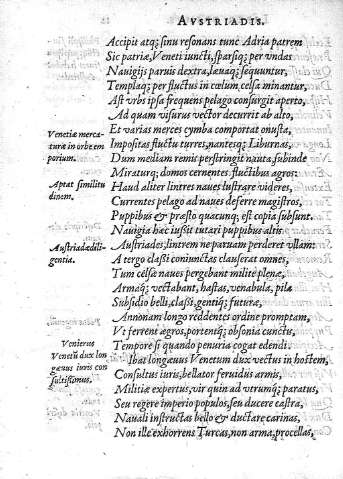 AVSTRIADIS.
Accipit atq; sinu resonans tunc Adria patrem
Sic patriæ, Veneti iuncti, sparsiq; per vndas
Nauigijs paruis dextra, læuaq; sequuntur,
Templaq; per fluctus in cœlum, celsa minantur,
Ast vrbs ipsa frequens pelago consurgit aperto,
Ad quam visurus vector decurrit ab alto,
Et varias merces cymba comportat onusta,
Venetiæ mercaturæ in orbe emporium.
Impositas fluctu turres, nantesq; Liburnas,
Dum mediam remis perstringit nauta, subinde
Miraturq; domos cernentes fluctibus agros:
Aptat similitudinem.
Haud aliter lintres naues lustrare videres,
Currentes pelago ad naues deferre magistros,
Puppibus & præsto quacunq; est copia subsunt.
Nauigia hæc iussit tutari puppibus altis
Austriadæ diligentia.
Austriades, lintrem ne paruam perderet vllam:
A tergo classi coniunctas clauserat omnes,
Tum celsæ naues pergebant milite plenæ,
Armaq; vectabant, hastas, venabula, pila
Subsidio belli, classi, gentiq; futura,
Annonam longo reddentes ordine promptam,
Vt ferrent ægros, portentq; obsonia cunctis,
Tempore si quando penuria cogat edendi.
Venierus Venetū dux longæuus iuris consultissimus.
Ibat longæuus Venetum dux vectus in hostem,
Consultus iuris, bellator feruidus armis,
Militiæ expertus, vir quin ad vtrumq; paratus,
Seu regere imperio populos, seu ducere castra,
Nauali instructas bello & ductare carinas,
Non ille exhorrens Turcas, non arma, procellas,